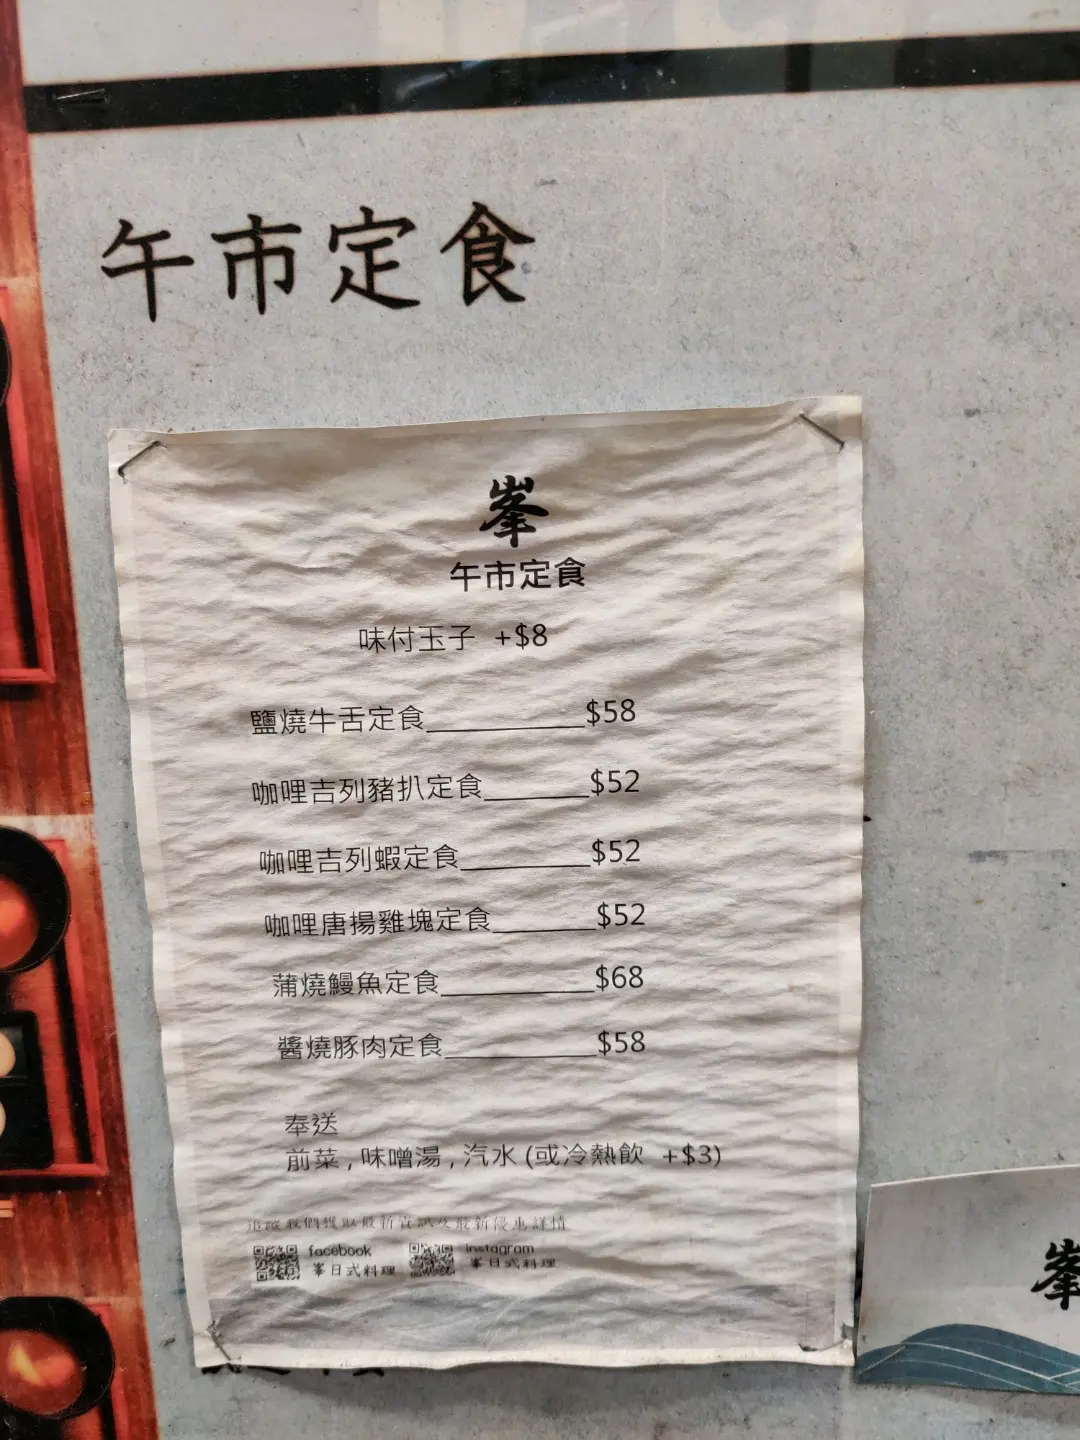 午市定食
峯
午市定食
味付玉子 +$8
鹽燒牛舌定食__________$58
咖哩吉列豬扒定食_______$52
咖哩吉列蝦定食_________$52
咖哩唐揚雞塊定食_______$52
蒲燒鰻魚定食__________$68
醬燒豚肉定食__________$58
奉送
前菜 , 味噌湯 , 汽水 (或冷熱飲 +$3)
追蹤我們獲取最新資訊及最新優惠詳情
facebook instagram
峯日式料理 峯日式料理
峯